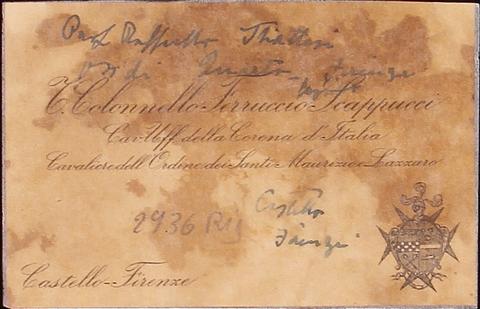 Prof Raffaello
di
T. Colonnello Ferruccio Scappucci
Cav. Uff. della Corona d'Italia
Cavaliere dell'Ordine dei Santi Maurizio e Lazzaro
2936
Castello
Firenze
Castello-Firenze